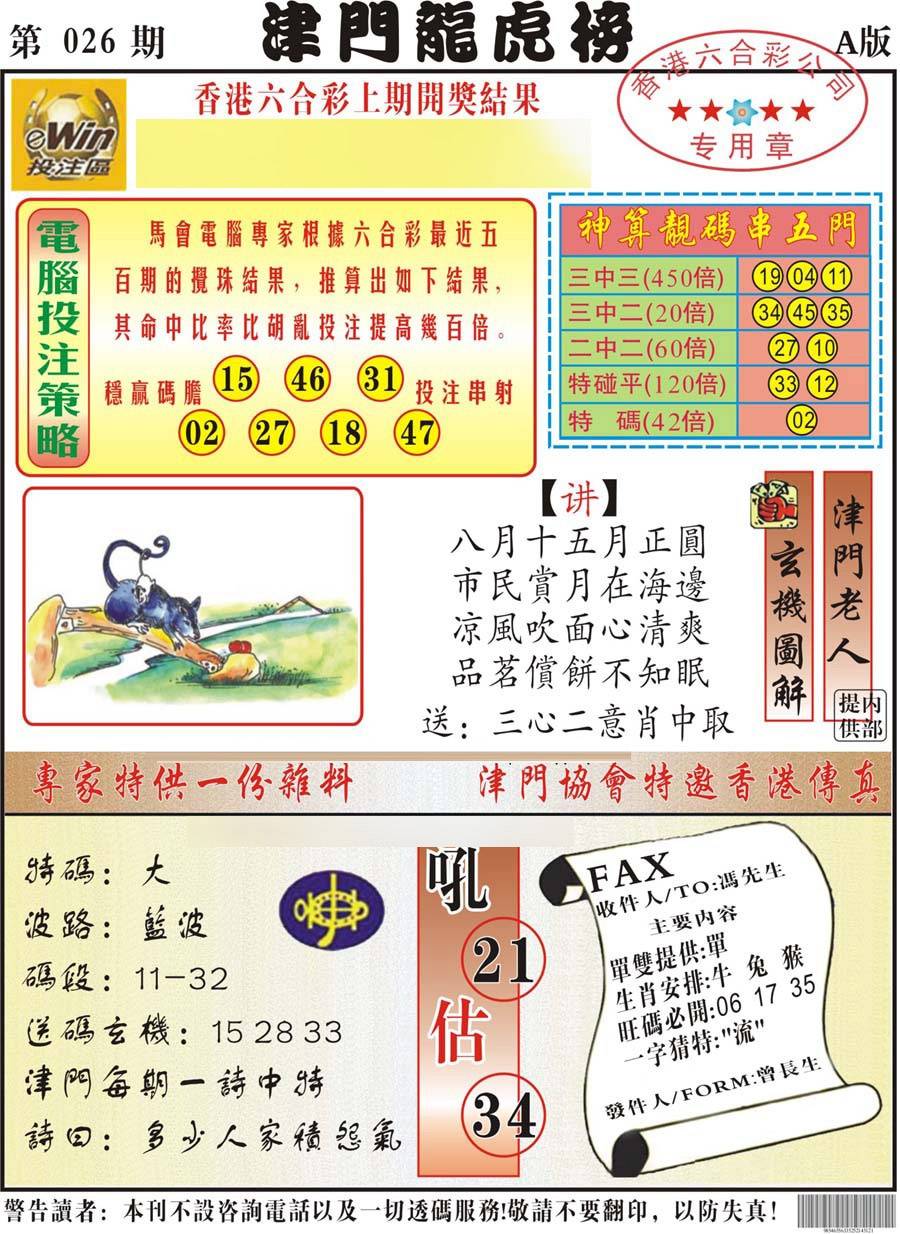 第 026 期
津門龍虎榜
A版
香港六合彩公司
专用章
eWin
投注區
香港六合彩上期開獎結果
電腦投注策略
馬會電腦專家根據六合彩最近五
百期的攪珠結果，推算出如下結果，
其命中比率比胡亂投注提高幾百倍。
穩贏碼膽 15 46 31 投注串射
02 27 18 47
神算靚碼串五門
三中三(450倍) 19 04 11
三中二(20倍) 34 45 35
二中二(60倍) 27 10
特碰平(120倍) 33 12
特 碼(42倍) 02
【讲】
八月十五月正圓
市民賞月在海邊
凉風吹面心清爽
品茗償餅不知眠
送：三心二意肖中取
玄機圖解
津門老人
内部提供
專家特供一份雜料
津門協會特邀香港傳真
特碼：大
波路：藍波
碼段：11-32
送碼玄機：15 28 33
津門每期一詩中特
詩曰：多少人家積怨氣
吼
21
估
34
FAX
收件人/TO:馮先生
主要内容
單雙提供:單
生肖安排:牛 兔 猴
旺碼必開:06 17 35
一字猜特:"流"
發件人/FORM:曾長生
警告讀者：本刊不設咨詢電話以及一切透碼服務!敬請不要翻印，以防失真！